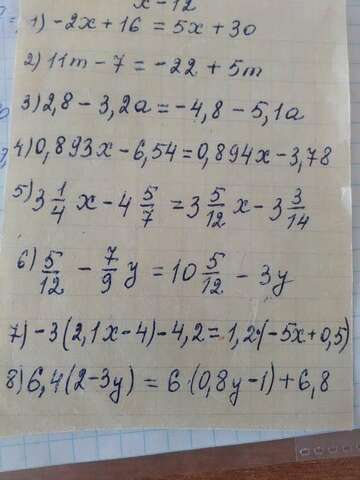 x-12
1) -2x + 16 = 5x + 30
2) 11m - 7 = -22 + 5m
3) 2,8 - 3,2a = -4,8 - 5,1a
4) 0,893x - 6,54 = 0,894x - 3,78
5) 3 1/4 x - 4 5/7 = 3 5/12 x - 3 3/14
6) 5/12 - 7/9 y = 10 5/12 - 3y
7) -3(2,1x - 4) - 4,2 = 1,2·(-5x + 0,5)
8) 6,4(2-3y) = 6·(0,8y-1) + 6,8